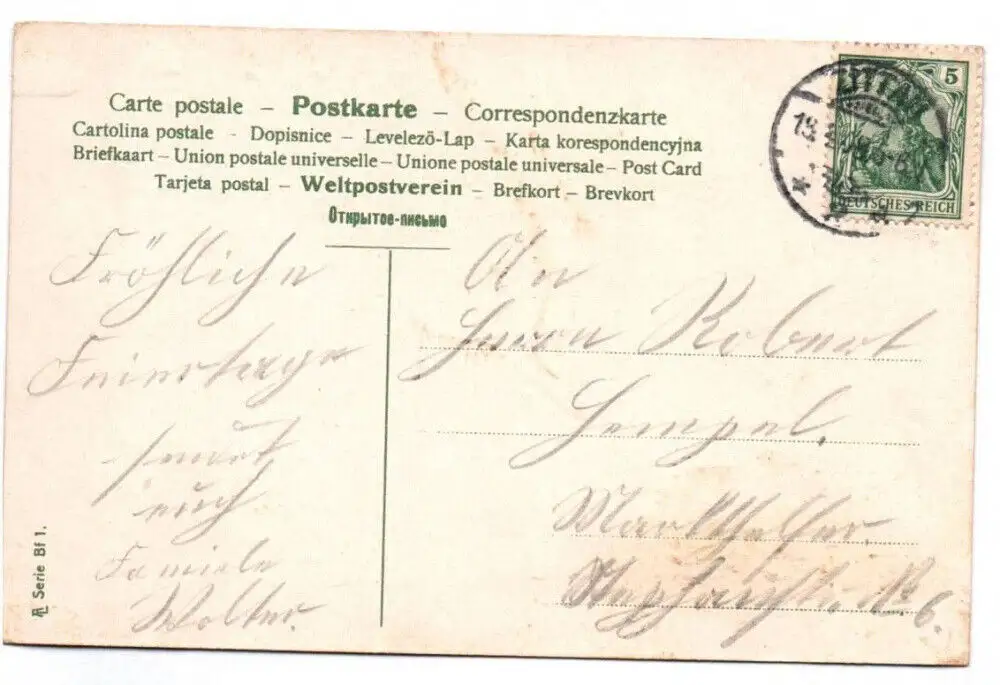 Carte postale – Postkarte – Correspondenzkarte
Cartolina postale - Dopisnice – Levelező-Lap - Karta korespondencyjna
Briefkaart – Union postale universelle – Unione postale universale – Post Card
Tarjeta postal – Weltpostverein – Brefkort – Brevkort
Открытое-письмо
5
ZITTAU
DEUTSCHES REICH
Fröhliche
Feiertage
euch
Familie
Wolter.
An
Herrn Robert
Hempel,
Markthelfer.
6.
Serie Bf 1.